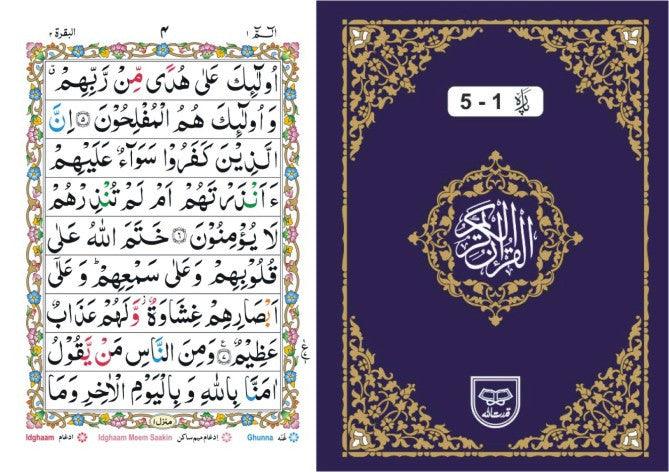 الٓمّٓ ١
۴
البقرة ٢
اُولٰٓئِكَ عَلٰى هُدًى مِّنْ رَّبِّهِمْ ۗ
وَ اُولٰٓئِكَ هُمُ الْمُفْلِحُوْنَ ۝٥ اِنَّ
الَّذِيْنَ كَفَرُوْا سَوَآءٌ عَلَيْهِمْ
ءَاَنْذَرْتَهُمْ اَمْ لَمْ تُنْذِرْهُمْ
لَا يُؤْمِنُوْنَ ۝٦ خَتَمَ اللّٰهُ عَلٰى
قُلُوْبِهِمْ وَعَلٰى سَمْعِهِمْ ؕ وَ عَلٰٓى
اَبْصَارِهِمْ غِشَاوَةٌ ؗ وَّلَهُمْ عَذَابٌ
عَظِيْمٌ ۝٧ وَمِنَ النَّاسِ مَنْ يَّقُوْلُ
اٰمَنَّا بِاللّٰهِ وَ بِالْيَوْمِ الْاٰخِرِ وَمَا
منزل ١
Idghaam ادغام Idghaam Meem Saakin ادغام میم ساکن Ghunna غنہ
پارہ 1 - 5
القرآن الكريم
قدرت اللہ